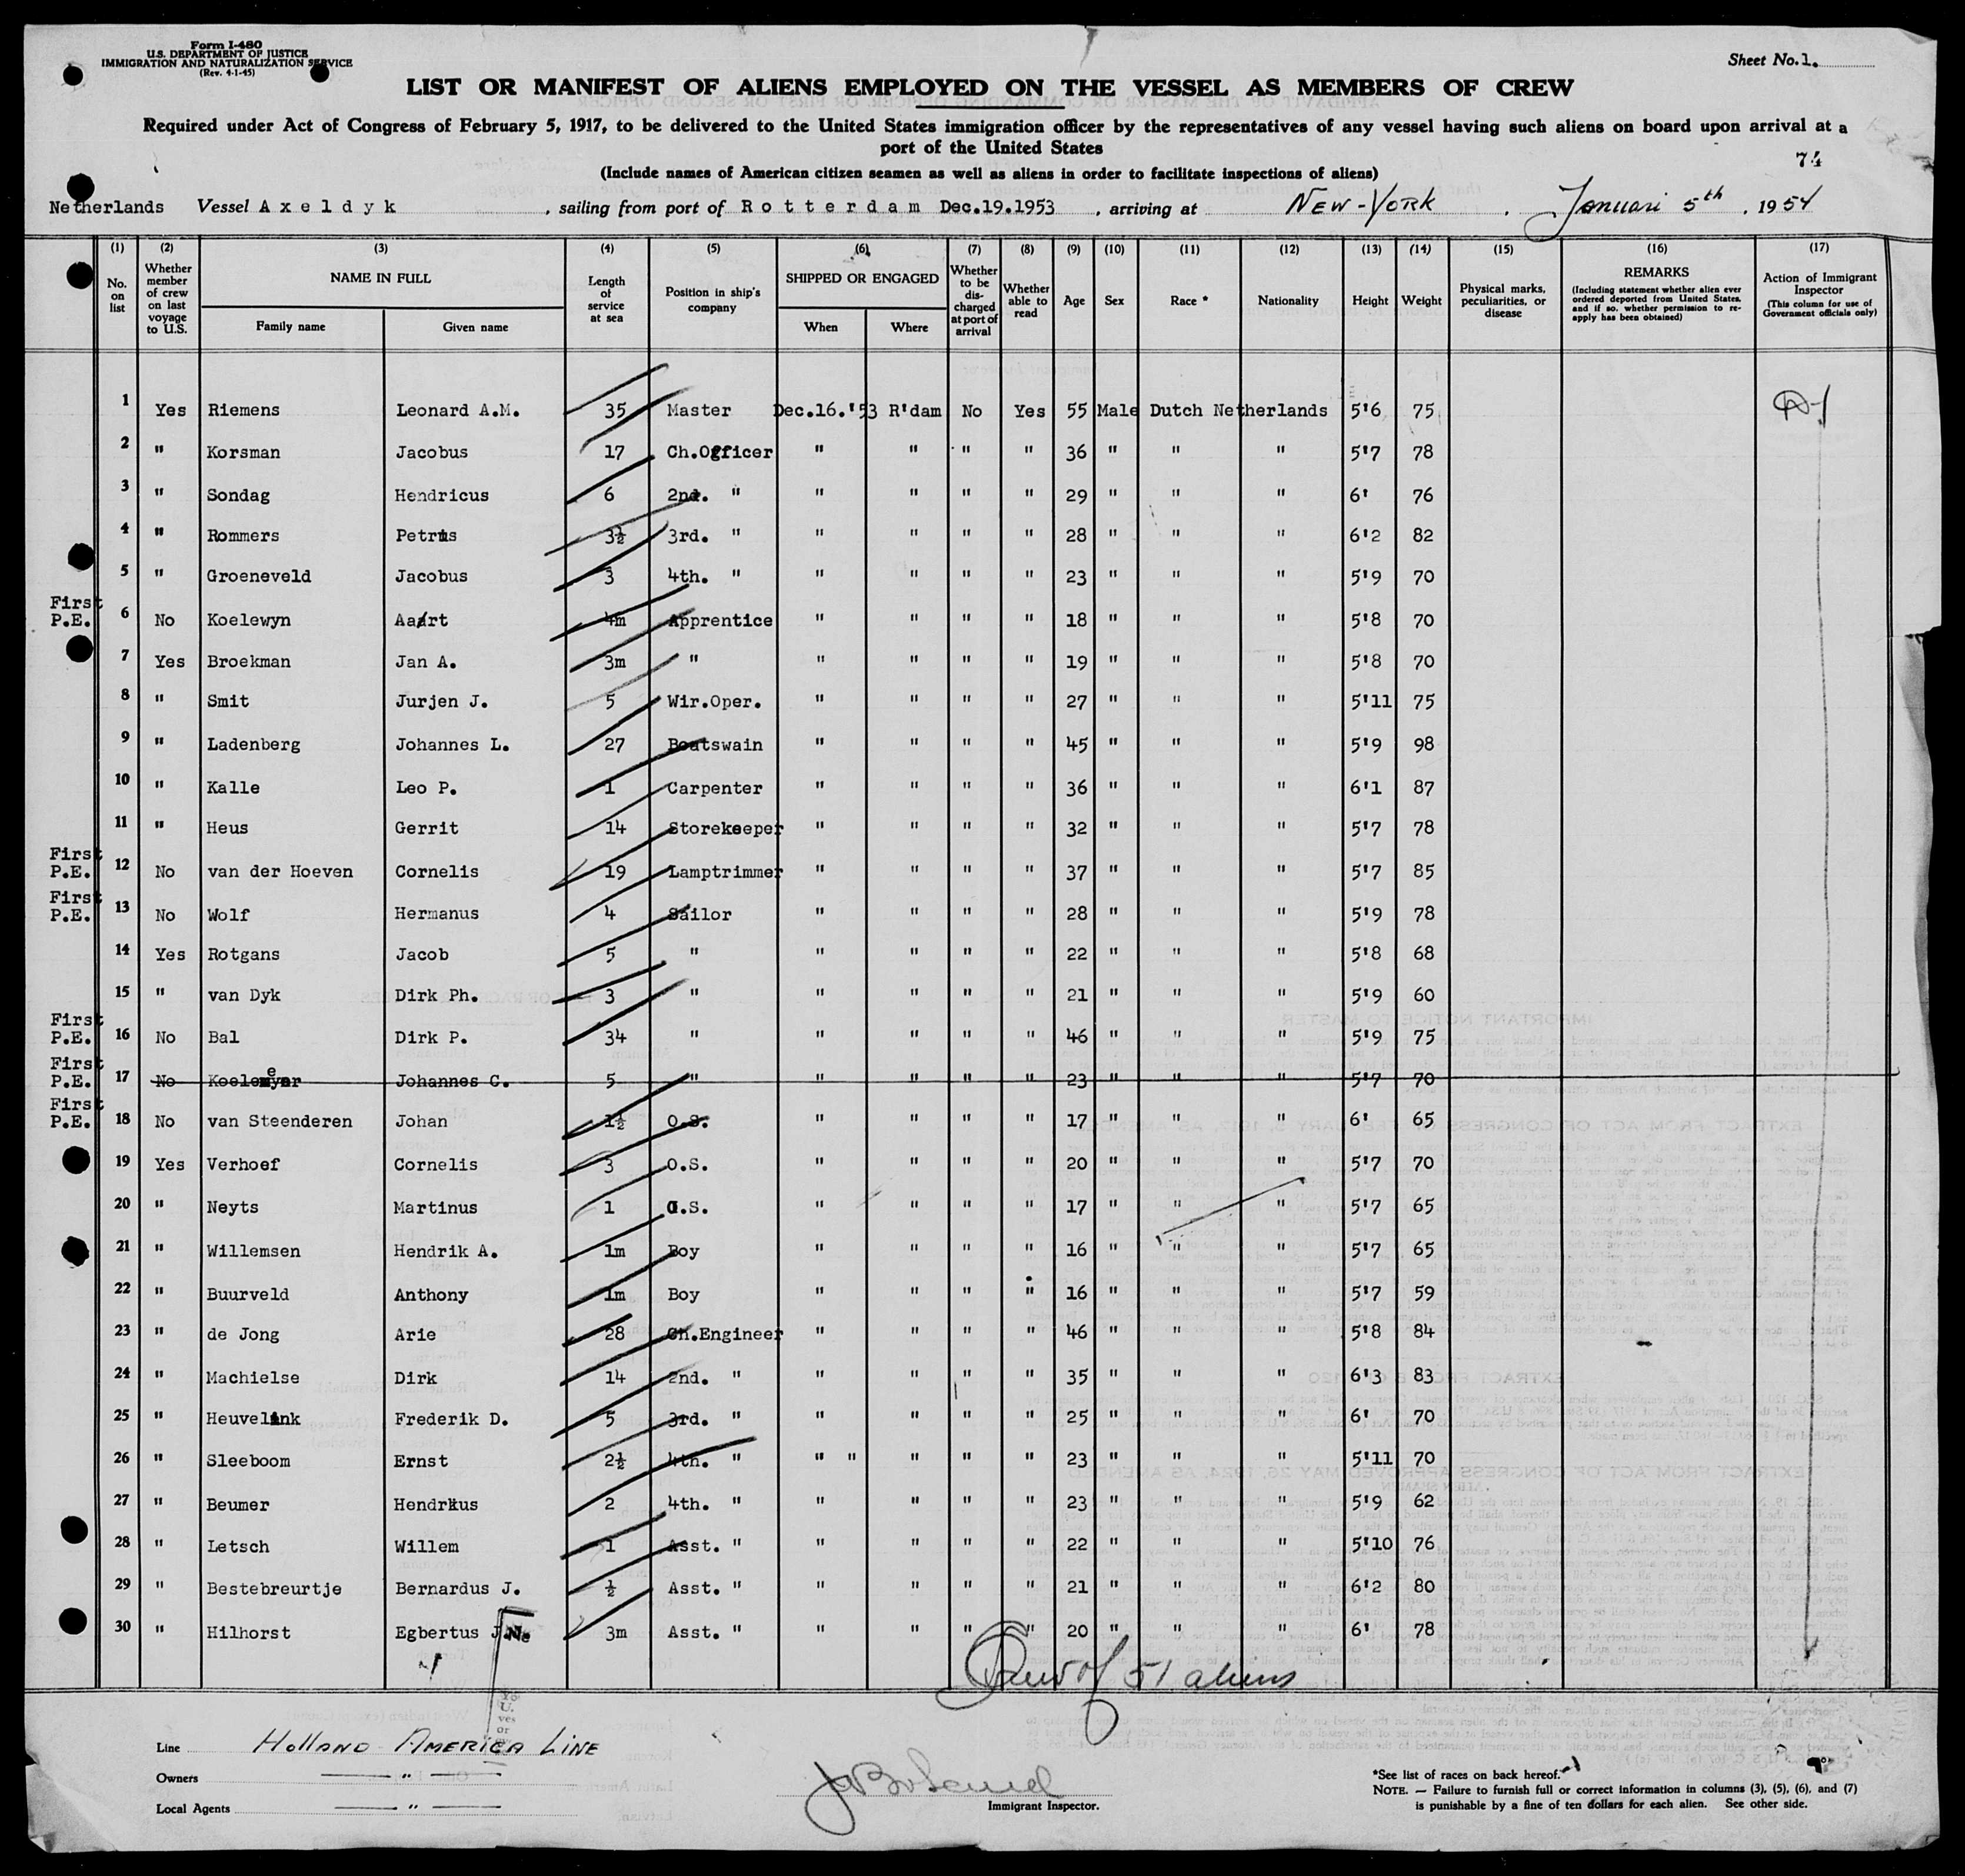 Form I-480
U.S. DEPARTMENT OF JUSTICE
IMMIGRATION AND NATURALIZATION SERVICE
(Rev. 4-1-45)
Sheet No. 1.
LIST OR MANIFEST OF ALIENS EMPLOYED ON THE VESSEL AS MEMBERS OF CREW
Required under Act of Congress of February 5, 1917, to be delivered to the United States immigration officer by the representatives of any vessel having such aliens on board upon arrival at a
port of the United States
(Include names of American citizen seamen as well as aliens in order to facilitate inspections of aliens)
74
Netherlands Vessel Axeldyk , sailing from port of Rotterdam Dec.19.1953 , arriving at NEW-YORK , Januari 5th , 1954
(1) (2) (3) (4) (5) (6) (7) (8) (9) (10) (11) (12) (13) (14) (15) (16) (17)
No. on list
Whether member of crew on last voyage to U.S.
NAME IN FULL
Family name Given name
Length of service at sea
Position in ship's company
SHIPPED OR ENGAGED
When Where
Whether to be discharged at port of arrival
Whether able to read
Age Sex Race * Nationality Height Weight
Physical marks, peculiarities, or disease
REMARKS
(Including statement whether alien ever ordered deported from United States, and if so, whether permission to re-apply has been obtained)
Action of Immigrant Inspector
(This column for use of Government officials only)
1 Yes Riemens Leonard A.M. 35 Master Dec.16.'53 R'dam No Yes 55 Male Dutch Netherlands 5'6 75
2 " Korsman Jacobus 17 Ch.Officer " " " " 36 " " " 5'7 78
3 " Sondag Hendricus 6 2nd. " " " " " 29 " " " 6' 76
4 " Rommers Petrus 3½ 3rd. " " " " " 28 " " " 6'2 82
5 " Groeneveld Jacobus 3 4th. " " " " " 23 " " " 5'9 70
First P.E. 6 No Koelewyn Aart 4m Apprentice " " " " 18 " " " 5'8 70
7 Yes Broekman Jan A. 3m " " " " " 19 " " " 5'8 70
8 " Smit Jurjen J. 5 Wir.Oper. " " " " 27 " " " 5'11 75
9 " Ladenberg Johannes L. 27 Boatswain " " " " 45 " " " 5'9 98
10 " Kalle Leo P. 1 Carpenter " " " " 36 " " " 6'1 87
11 " Heus Gerrit 14 Storekeeper " " " " 32 " " " 5'7 78
First P.E. 12 No van der Hoeven Cornelis 19 Lamptrimmer " " " " 37 " " " 5'7 85
First P.E. 13 No Wolf Hermanus 4 Sailor " " " " 28 " " " 5'9 78
14 Yes Rotgans Jacob 5 " " " " " 22 " " " 5'8 68
15 " van Dyk Dirk Ph. 3 " " " " " 21 " " " 5'9 60
First P.E. 16 No Bal Dirk P. 34 " " " " " 46 " " " 5'9 75
First P.E. 17 No Johannes C. 5 " " " " " 23 " " " 5'7 70
First P.E. 18 No van Steenderen Johan 1½ O.S. " " " " 17 " " " 6' 65
19 Yes Verhoef Cornelis 3 O.S. " " " " 20 " " " 5'7 70
20 " Neyts Martinus 1 O.S. " " " " 17 " " " 5'7 65
21 " Willemsen Hendrik A. 1m Boy " " " " 16 " " " 5'7 65
22 " Buurveld Anthony 1m Boy " " " " 16 " " " 5'7 59
23 " de Jong Arie 28 Ch.Engineer " " " " 46 " " " 5'8 84
24 " Machielse Dirk 14 2nd. " " " " " 35 " " " 6'3 83
25 " Heuvelink Frederik D. 5 3rd. " " " " " 25 " " " 6' 70
26 " Sleeboom Ernst 2½ 4th. " " " " " " 23 " " " 5'11 70
27 " Beumer Hendrikus 2 4th. " " " " " 23 " " " 5'9 62
28 " Letsch Willem 1 Asst. " " " " " 22 " " " 5'10 76
29 " Bestebreurtje Bernardus J. ½ Asst. " " " " " 21 " " " 6'2 80
30 " Hilhorst Egbertus 3m Asst. " " " " " 20 " " " 6' 78
Crew of 51 aliens
Line HOLLAND AMERICA LINE
Owners — " —
Local Agents — " —
Immigrant Inspector.
*See list of races on back hereof.
NOTE. — Failure to furnish full or correct information in columns (3), (5), (6), and (7)
is punishable by a fine of ten dollars for each alien. See other side.